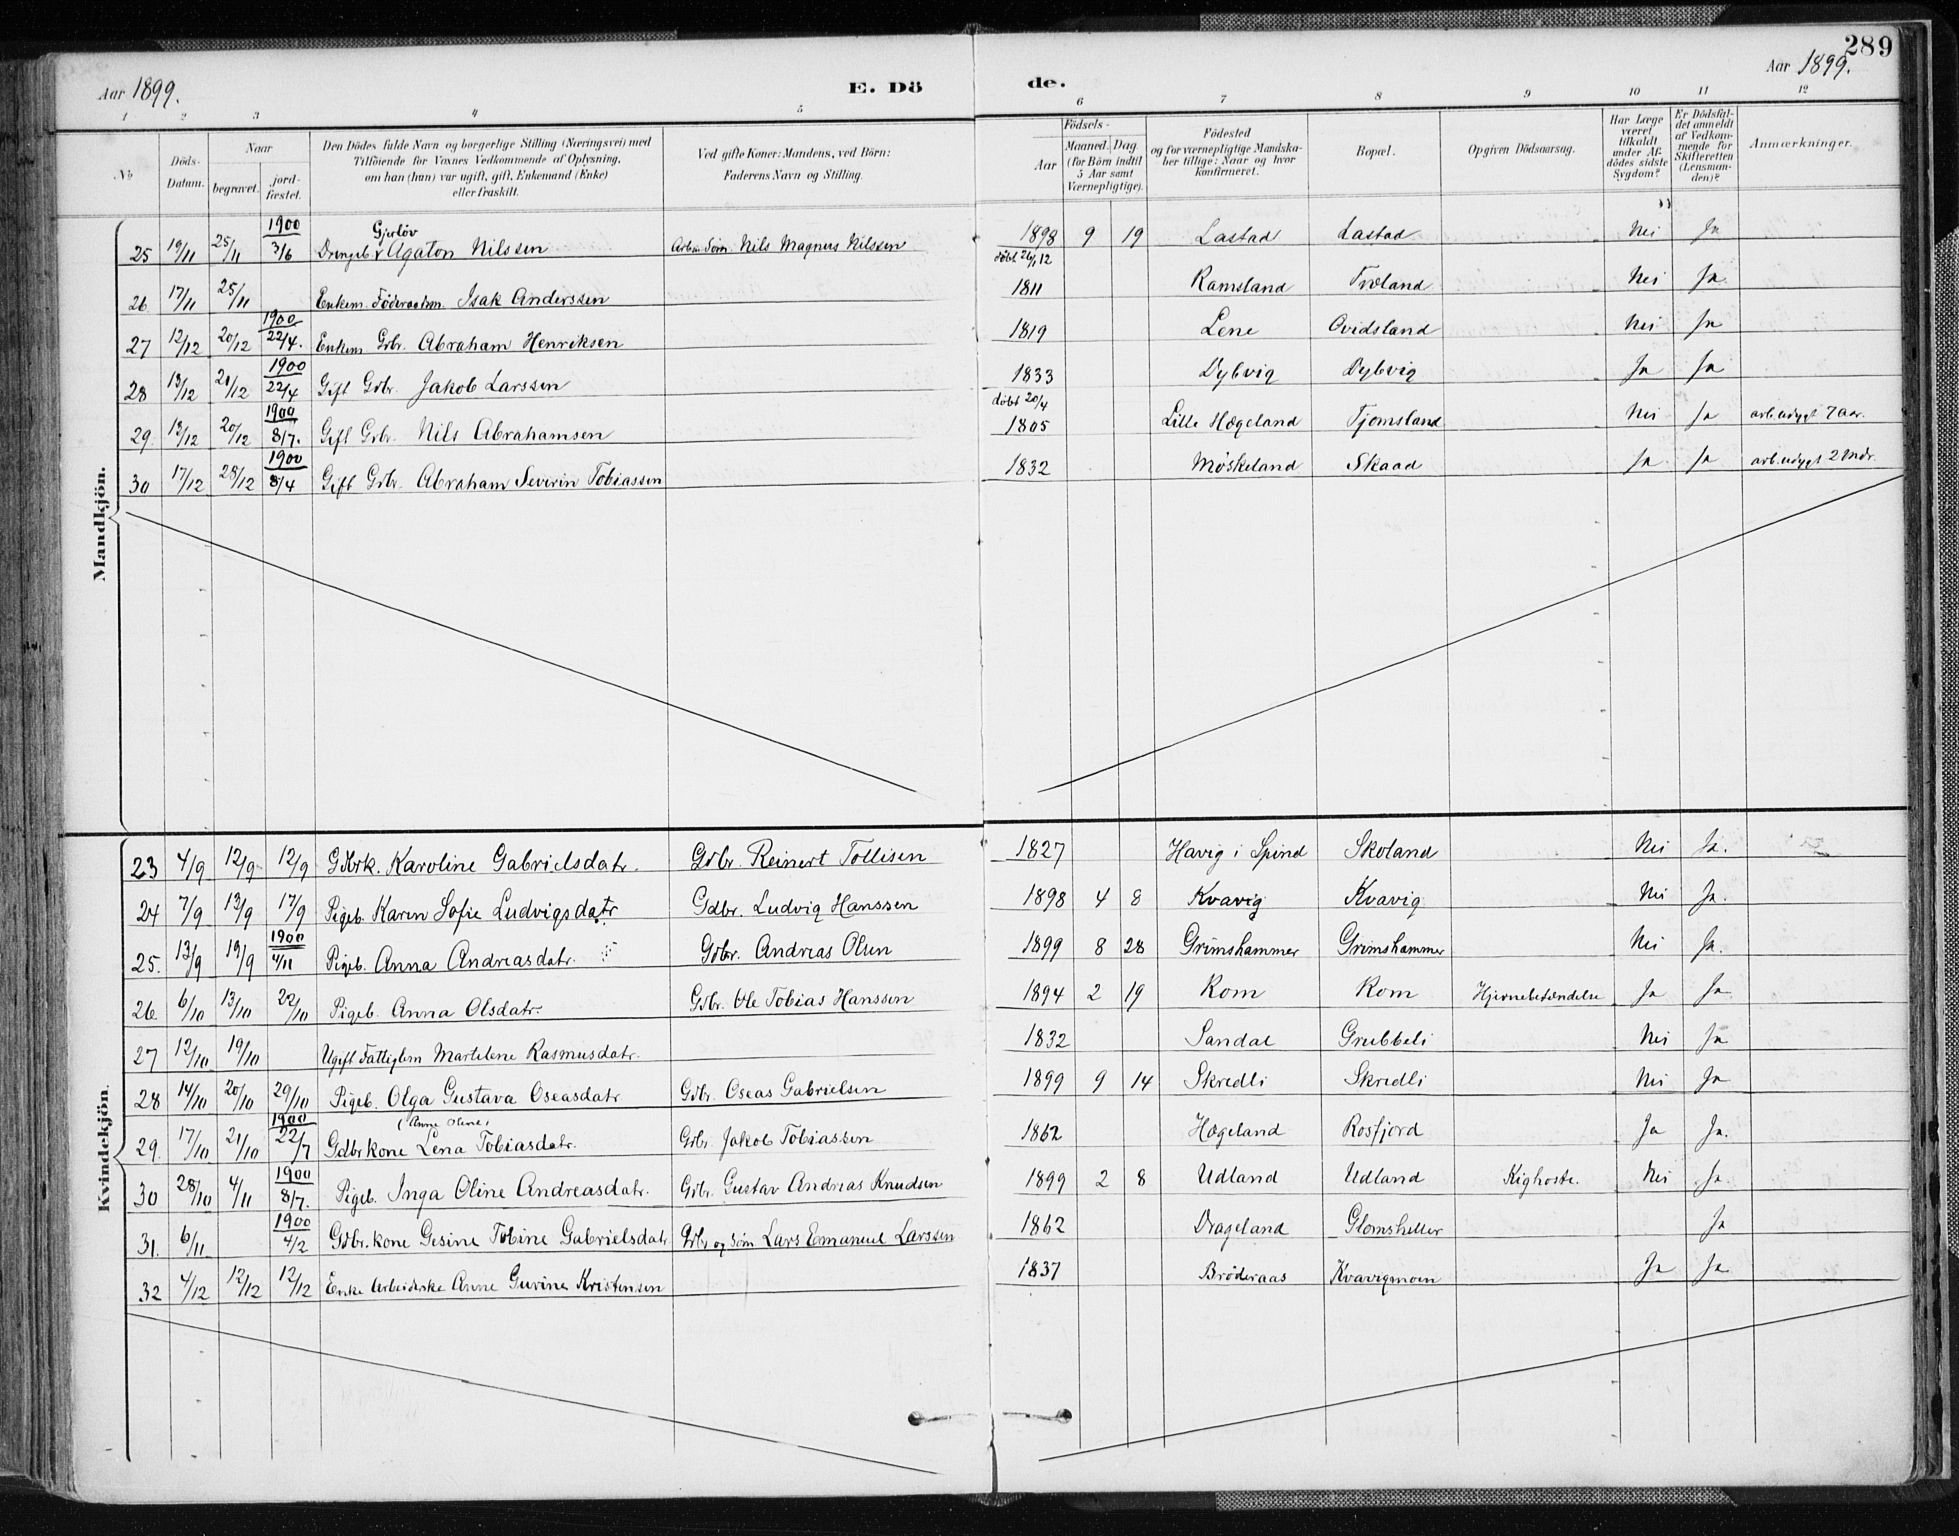 289
Aar 1899. E. Dö de. Aar 1899.
1 2 3 4 5 6 7 8 9 10 11 12
No Döds-Datum. Naar begravet. jord-fæstet. Den Dödes fulde Navn og borgerlige Stilling (Næringsvei) med Tilföiende for Voxnes Vedkommende af Oplysning, om han (hun) var ugift, gift, Enkemand (Enke) eller fraskilt. Ved gifte Koner: Mandens, ved Börn: Faderens Navn og Stilling. Födsels- Aar Maaned. Dag (for Börn indtil 5 Aar samt Værnepligtige). Födested og for værnepligtige Mandska-ber tillige: Naar og hvor konfirmeret. Bopæl. Opgiven Dödsaarsag. Har Læge været tilkaldt under Af-dödes sidste Sygdom? Er Dödsfal-det anmeldt af Vedkom-mende for Skifteretten (Lensman-den)? Anmærkninger.
Mandkjön.
25 19/11 25/11 1900 3/6 Drengeb. Gjerlöv Agaton Nilssen Arb. Söm. Nils Magnus Nilssen 1898 9 19 Lastad Lastad Nei Ja
26 17/11 25/11 Enkem. Föderaadsm. Isak Anderssen döbt 26/1 12 1811 Ramsland Troland Nei Ja
27 12/12 20/12 1900 22/4. Enkem Grbr. Abraham Henriksen 1819 Lene Ovidsland Nei Ja
28 13/12 21/12 1900 22/4 Gift Grbr. Jakob Larssen 1833 Dybvig Dybvig Ja Ja
29. 13/12 20/12 1900 8/7. Gift Grbr. Nils Abrahamsen döbt 20/4 1805 Lille Hægeland Tjomsland Nei Ja arb.udygt. 7 aar.
30 17/12 28/12 1900 8/4 Gift Grbr. Abraham Severin Tobiassen 1832 Møskeland Skaad Ja Ja arb.udygt 2 Mdr.
Kvindekjön.
23 4/9 12/9 12/9 Gdbrk. Karoline Gabrielsdatr. Gdbr. Reinert Tollisen 1827 Havig i Spind Skoland Nei Ja.
24 7/9 13/9 17/9 Pigeb. Karen Sofie Ludvigsdatr Gdbr. Ludvig Hanssen 1898 4 8 Kvavig Kvavig Nei Ja.
25. 13/9 19/9 1900 4/11 Pigeb. Anna Andreasdatr. Gdbr. Andreas Olsen 1899 8 28 Grimshammer Grimshammer Nei Ja.
26 6/10 13/10 22/10 Pigeb. Anna Olsdatr. Gdbr. Ole Tobias Hanssen 1894 2 19 Rom Rom Hjernebetændelse Ja Ja
27 12/10 19/10 Ugift Fattiglem Martelene Rasmusdatr. 1832 Sandal Grubbeli Nei Ja
28 14/10 20/10 29/10 Pigeb. Olga Gustava Oseasdatr Gdbr. Oseas Gabrielsen 1899 9 14 Skredli Skredli Nei Ja
29. 17/10 21/10 1900 22/7 Gdbrkone Lena (Anne Oline) Tobiasdatr. Grbr. Jakob Tobiassen 1862 Hægeland Rosfjord Ja Ja.
30 28/10 4/11 1900 8/7. Pigeb. Inga Oline Andreasdatr. Grbr. Gustav Andreas Knudsen 1899 2 8 Udland Udland Kighoste. Nei Ja.
31. 6/11 1900 4/2 Gdbr.kone Gesine Tobine Gabrielsdatr Grbr og Söm. Lars Emanuel Larssen 1862 Drageland Glomsheller Ja
32 4/12 12/12 12/12 Enke Arbeiderske Anne Gurine Kristensen 1837 Bröderaas Kvavigmoen Ja Ja